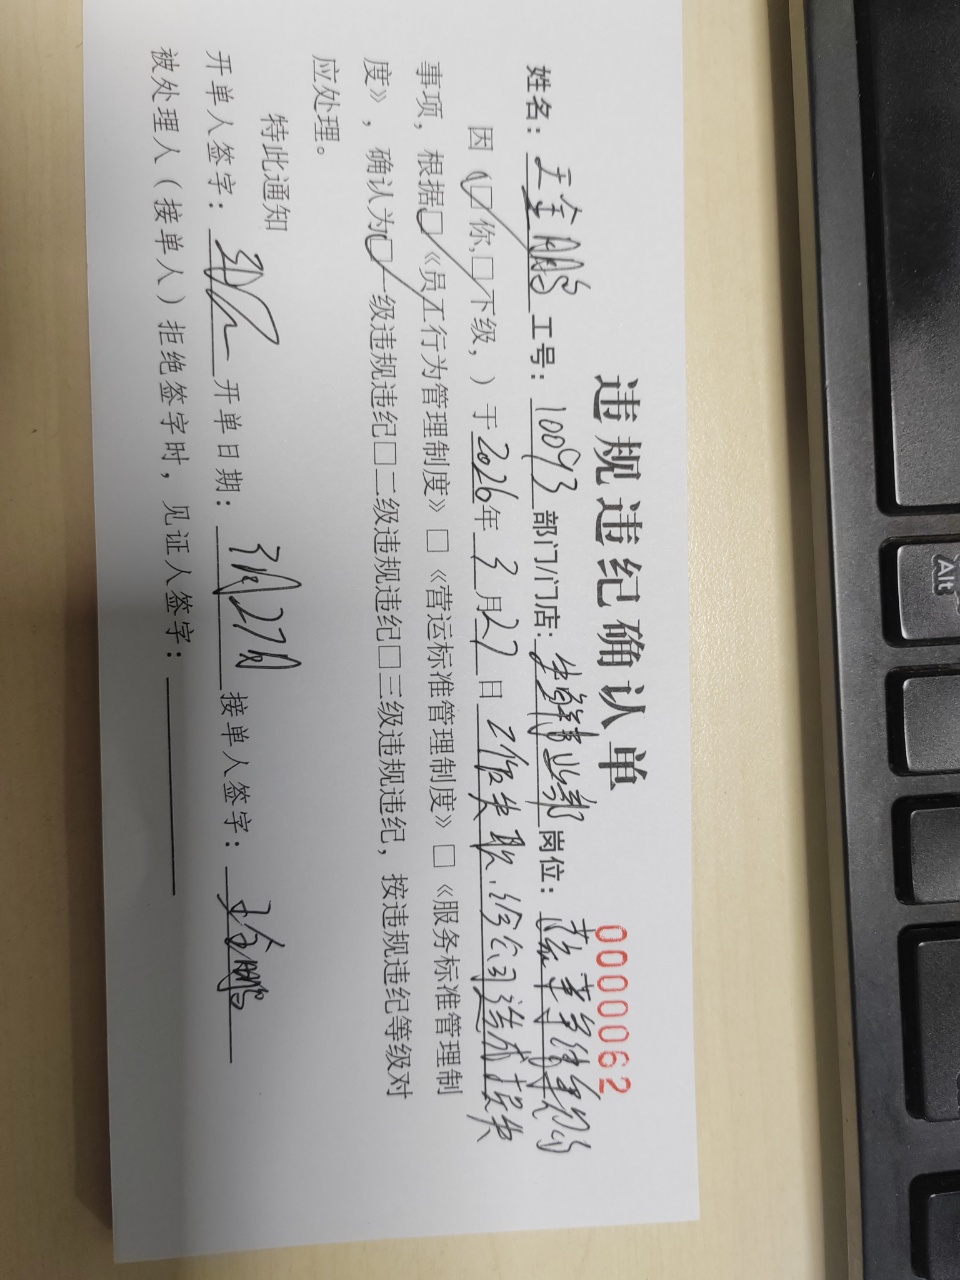 违规违纪确认单 0000062
姓名：王金鹏 工号：10093 部门/门店：生鲜事业部 岗位：蔬果
因（☑你，□下级，）于2026年3月27日工作失职，给公司造成损失
事项，根据☑《员工行为管理制度》□《营运标准管理制度》□《服务标准管理制
度》，确认为☑一级违规违纪□二级违规违纪□三级违规违纪，按违规违纪等级对
应处理。
特此通知
开单人签字： 开单日期：3月27日 接单人签字：王金鹏
被处理人（接单人）拒绝签字时，见证人签字：
Alt